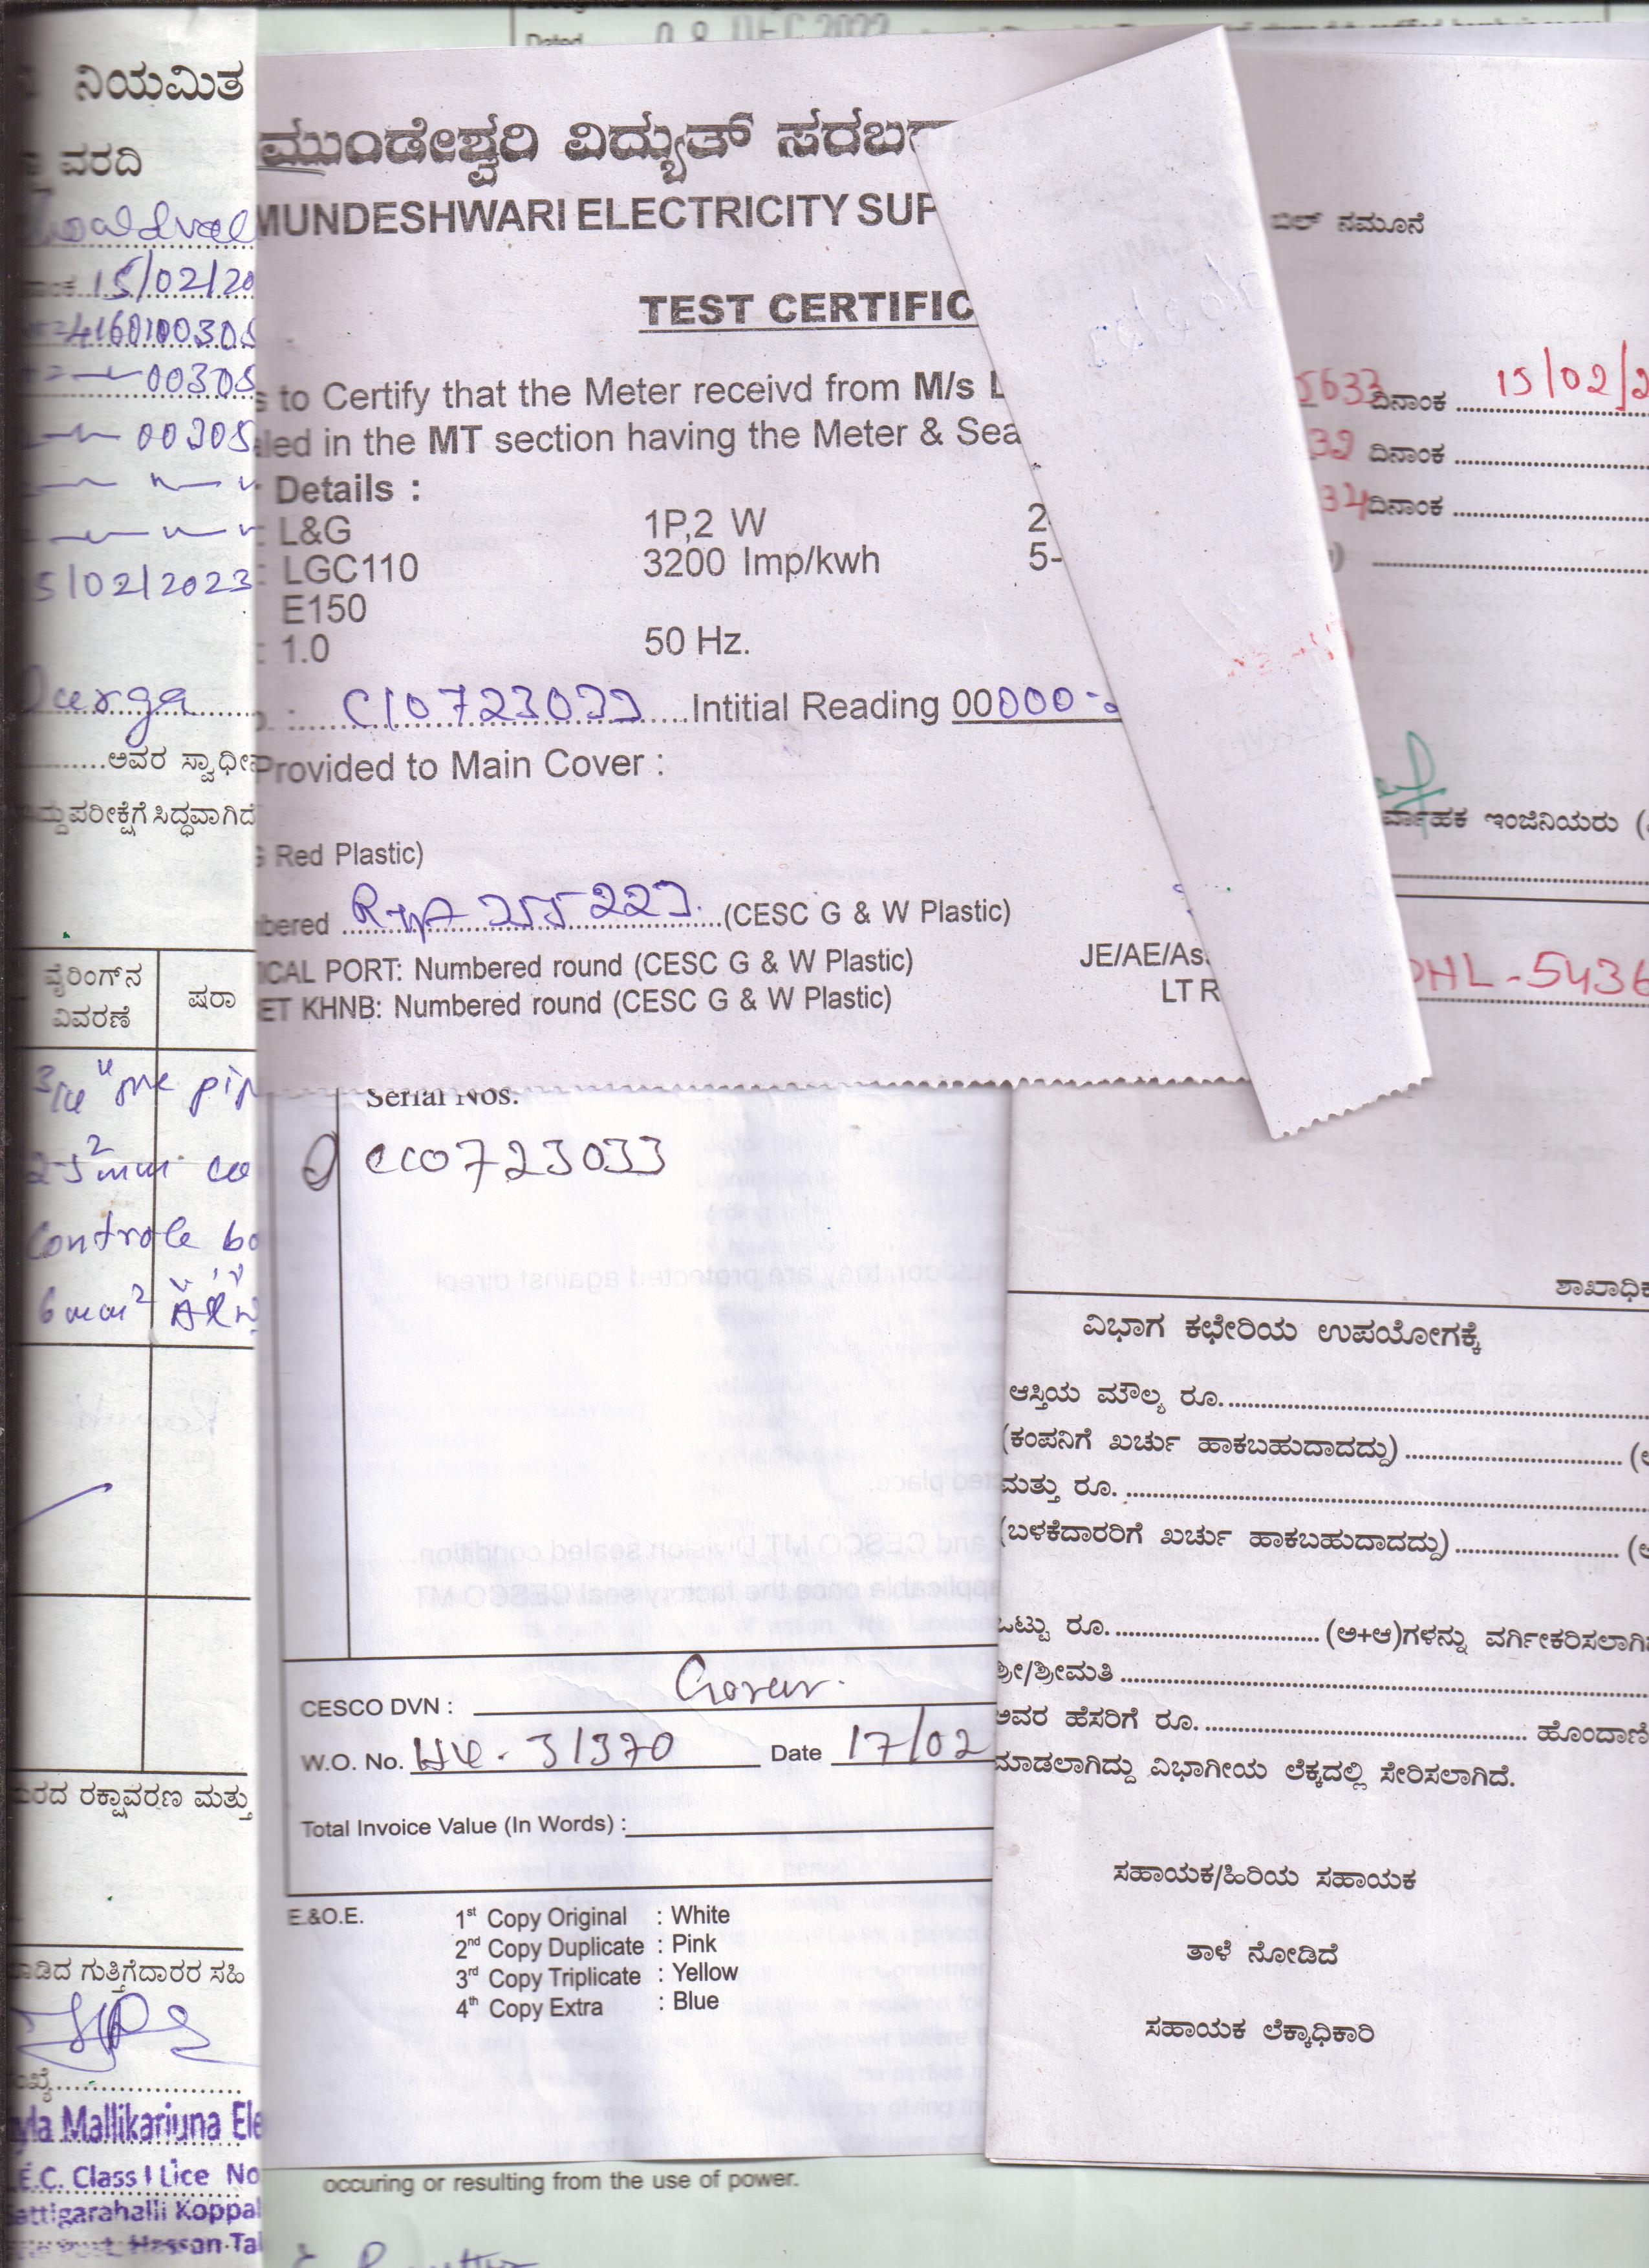 Dated 08 DEC 2022
ನಿಯಮಿತ
ವರದಿ
15/02/20
4160100305
00305
00305
5/02/2023
Durga
ಅವರ ಸ್ವಾಧೀನ
ಪರೀಕ್ಷೆಗೆ ಸಿದ್ಧವಾಗಿದೆ
ವೈರಿಂಗ್‌ನ ವಿವರಣೆ
ಷರಾ
3/4" pve pip
2.5 mm² co
Controle bo
6 mm²
ರದ ರಕ್ಷಾವರಣ ಮತ್ತು
ಗುತ್ತಿಗೆದಾರರ ಸಹಿ
Mallikarjuna Ele
E.C. Class I Lice No
attigarahalli Koppal
Hassan Tal
ಮುಂಡೇಶ್ವರಿ ವಿದ್ಯುತ್ ಸರಬರಾ
MUNDESHWARI ELECTRICITY SUP
TEST CERTIFIC
s to Certify that the Meter receivd from M/s L
led in the MT section having the Meter & Sea
Details :
: L&G 1P,2 W 2
: LGC110 3200 Imp/kwh 5-
E150
: 1.0 50 Hz.
C10723033 Intitial Reading 00000
Provided to Main Cover :
G Red Plastic)
bered 255223 (CESC G & W Plastic)
ICAL PORT: Numbered round (CESC G & W Plastic) JE/AE/Ass
ET KHNB: Numbered round (CESC G & W Plastic) LT R
Serial Nos.
C10723033
CESCO DVN :
W.O. No. 31370 Date 17/02
Total Invoice Value (In Words) :
E.&O.E.
1st Copy Original : White
2nd Copy Duplicate : Pink
3rd Copy Triplicate : Yellow
4th Copy Extra : Blue
occuring or resulting from the use of power.
ಬಿಲ್ ನಮೂನೆ
5633 ದಿನಾಂಕ 15/02/2
32 ದಿನಾಂಕ
34 ದಿನಾಂಕ
ರ್ವಾಹಕ ಇಂಜಿನಿಯರು (
DHL-5436
ಶಾಖಾಧಿಕ
ವಿಭಾಗ ಕಛೇರಿಯ ಉಪಯೋಗಕ್ಕೆ
ಆಸ್ತಿಯ ಮೌಲ್ಯ ರೂ.
(ಕಂಪನಿಗೆ ಖರ್ಚು ಹಾಕಬಹುದಾದದ್ದು) (ಅ
ಮತ್ತು ರೂ.
(ಬಳಕೆದಾರರಿಗೆ ಖರ್ಚು ಹಾಕಬಹುದಾದದ್ದು) (ಆ
ಒಟ್ಟು ರೂ. (ಅ+ಆ)ಗಳನ್ನು ವರ್ಗೀಕರಿಸಲಾಗಿ
ಶ್ರೀ/ಶ್ರೀಮತಿ
ಅವರ ಹೆಸರಿಗೆ ರೂ. ಹೊಂದಾಣಿ
ಮಾಡಲಾಗಿದ್ದು ವಿಭಾಗೀಯ ಲೆಕ್ಕದಲ್ಲಿ ಸೇರಿಸಲಾಗಿದೆ.
ಸಹಾಯಕ/ಹಿರಿಯ ಸಹಾಯಕ
ತಾಳೆ ನೋಡಿದೆ
ಸಹಾಯಕ ಲೆಕ್ಕಾಧಿಕಾರಿ